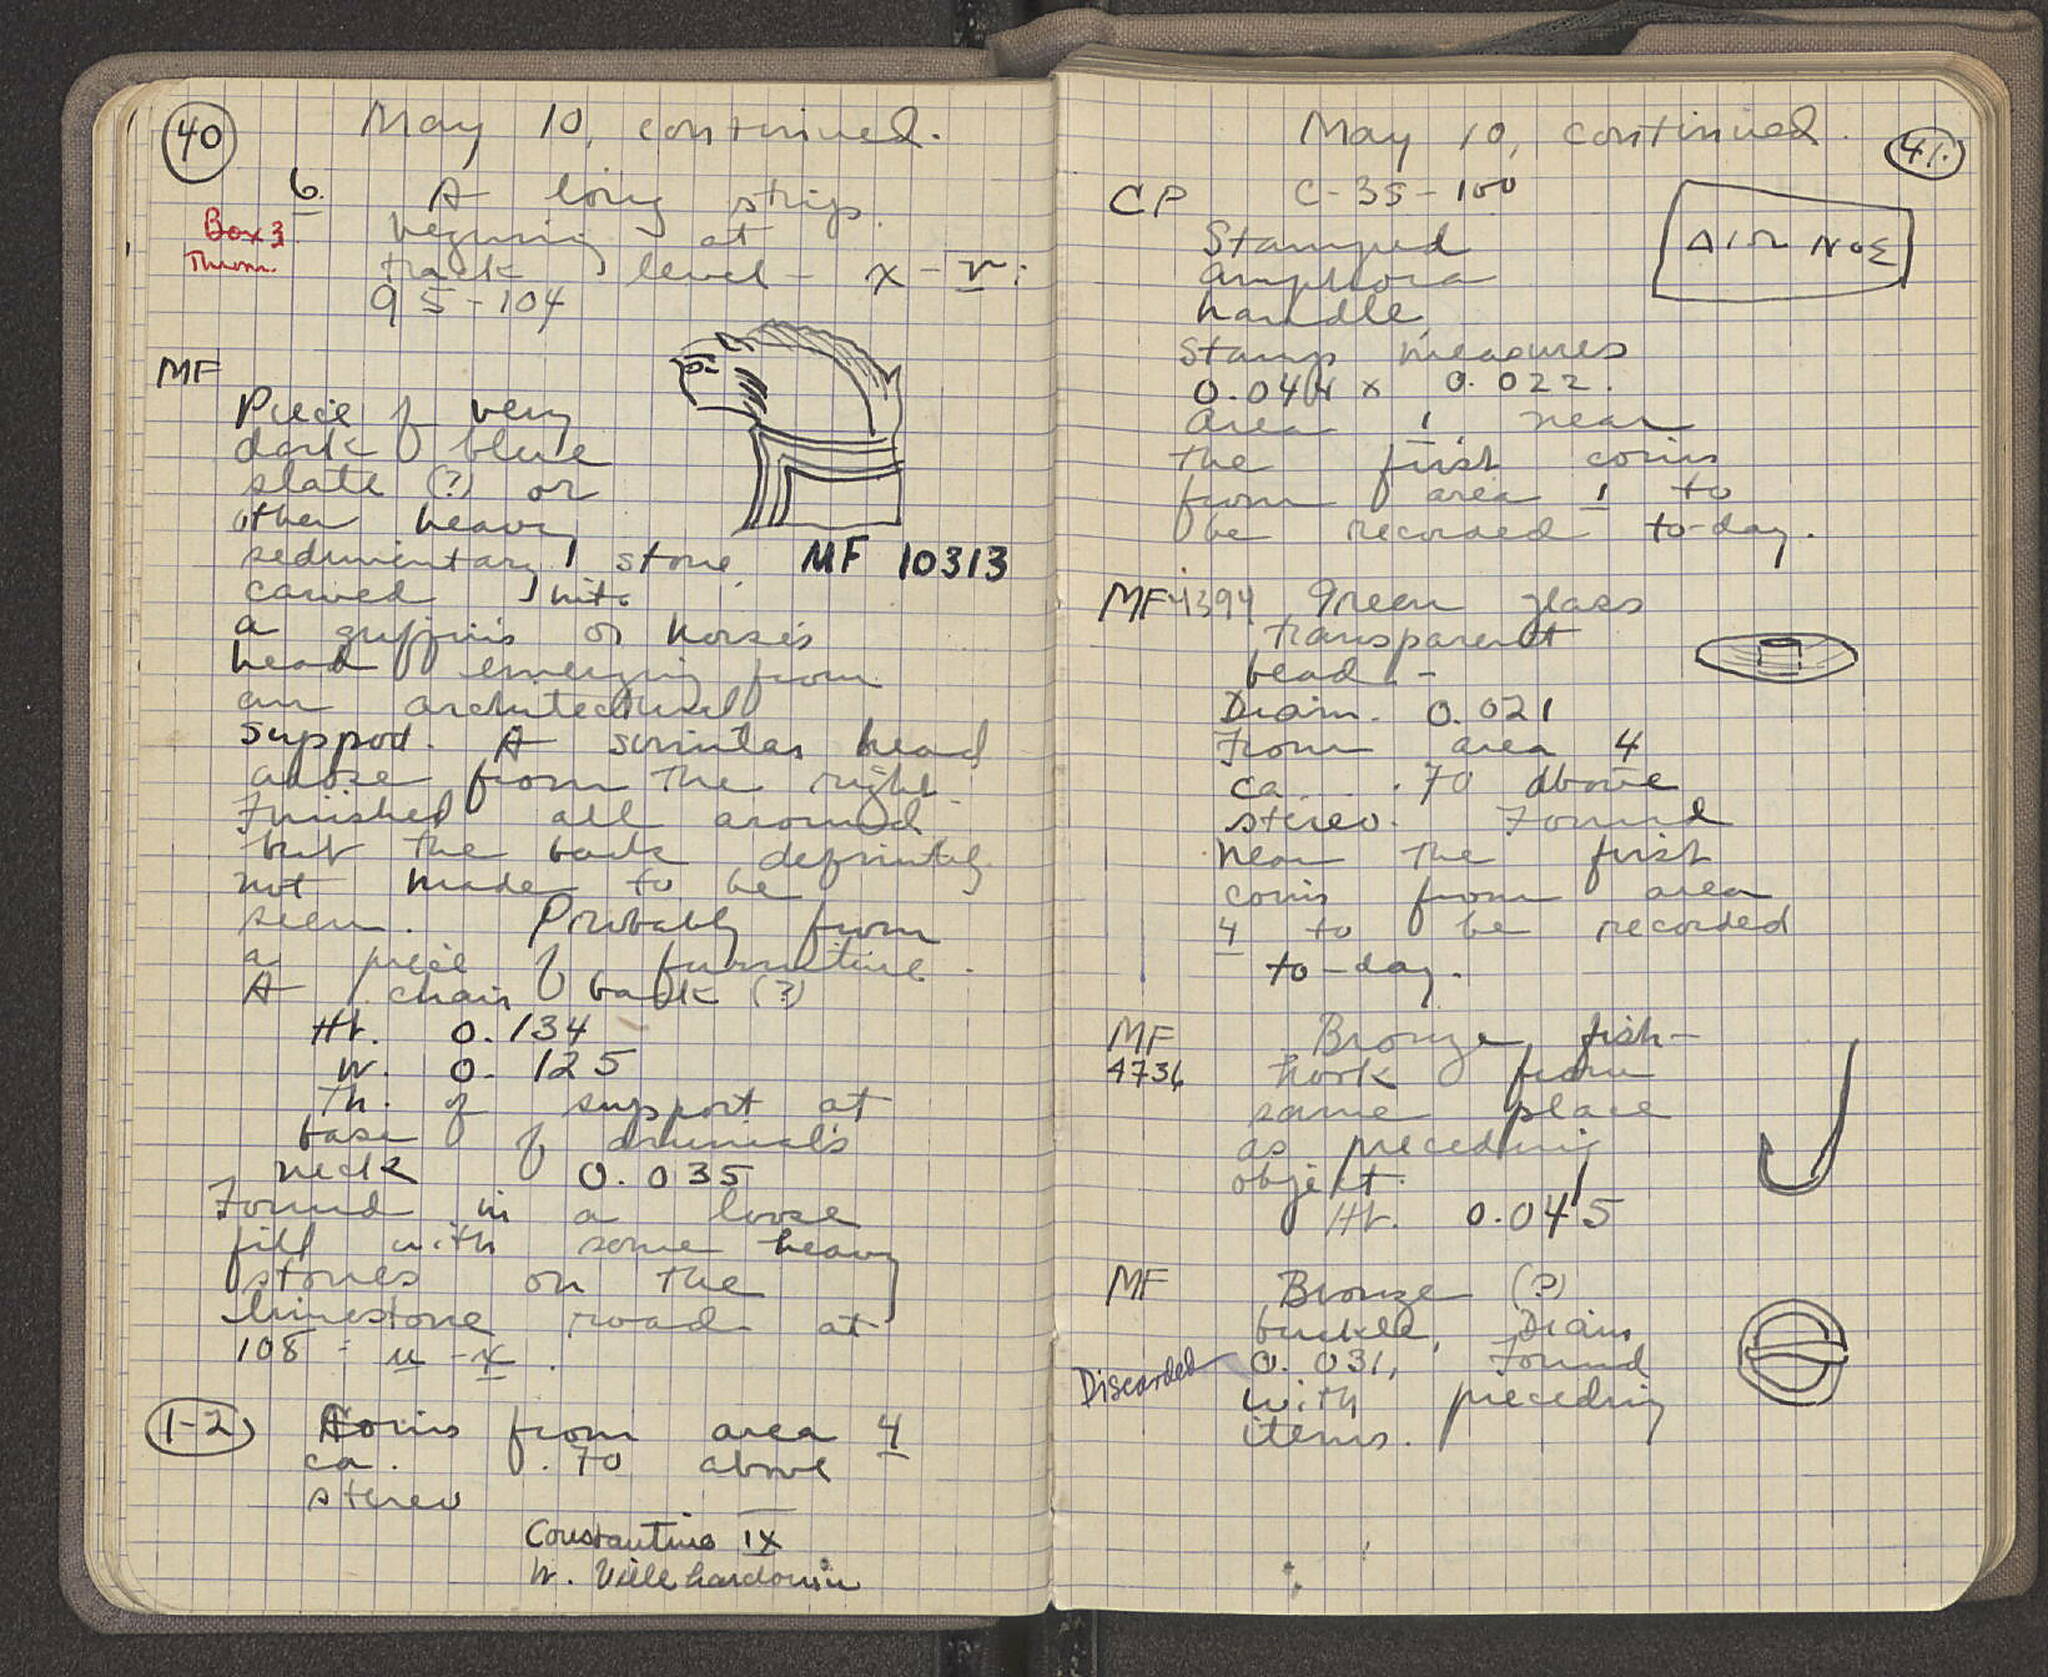 40
May 10, continued.
6. A long strip
Box 3
Throm.
beginning at
track level - x - v :
95-104
MF
Piece of very
dark blue
slate (?) or
other heavy
sedimentary stone,
MF 10313
carved into
a griffin's or horse's
head emerging from
an architectural
support. A similar head
arose from the right.
Finished all around
but the back definitely
not made to be
seen. Probably from
a piece of furniture.
A chair back (?)
Ht. 0.134
W. 0.125
Th. of support at
base of animal's
neck 0.035
Found in a loose
fill with some heavy
stones on the
limestone road at
108 : u - x .
1-2 Coins from area 4
ca. .70 above
stereo
Constantine IX
W. Villehardouin
May 10, continued.
41.
CP C-35-100
ΔΙΩ ΝΟΣ
Stamped
amphora
handle,
Stamp measures
0.044 x 0.022.
Area 1, near
the first coins
from area 1 to
be recorded to-day.
MF 4394 Green glass
transparent
bead. -
Diam. 0.021
From area 4
ca. .70 above
stereo. Found
near the first
coins from area
4 to be recorded
to-day.
MF Bronze fish-
4736 hook from
same place
as preceding
object.
Ht. 0.045
MF Bronze (?)
buckle, Diam
Discarded 0.031, Found
with preceding
items.